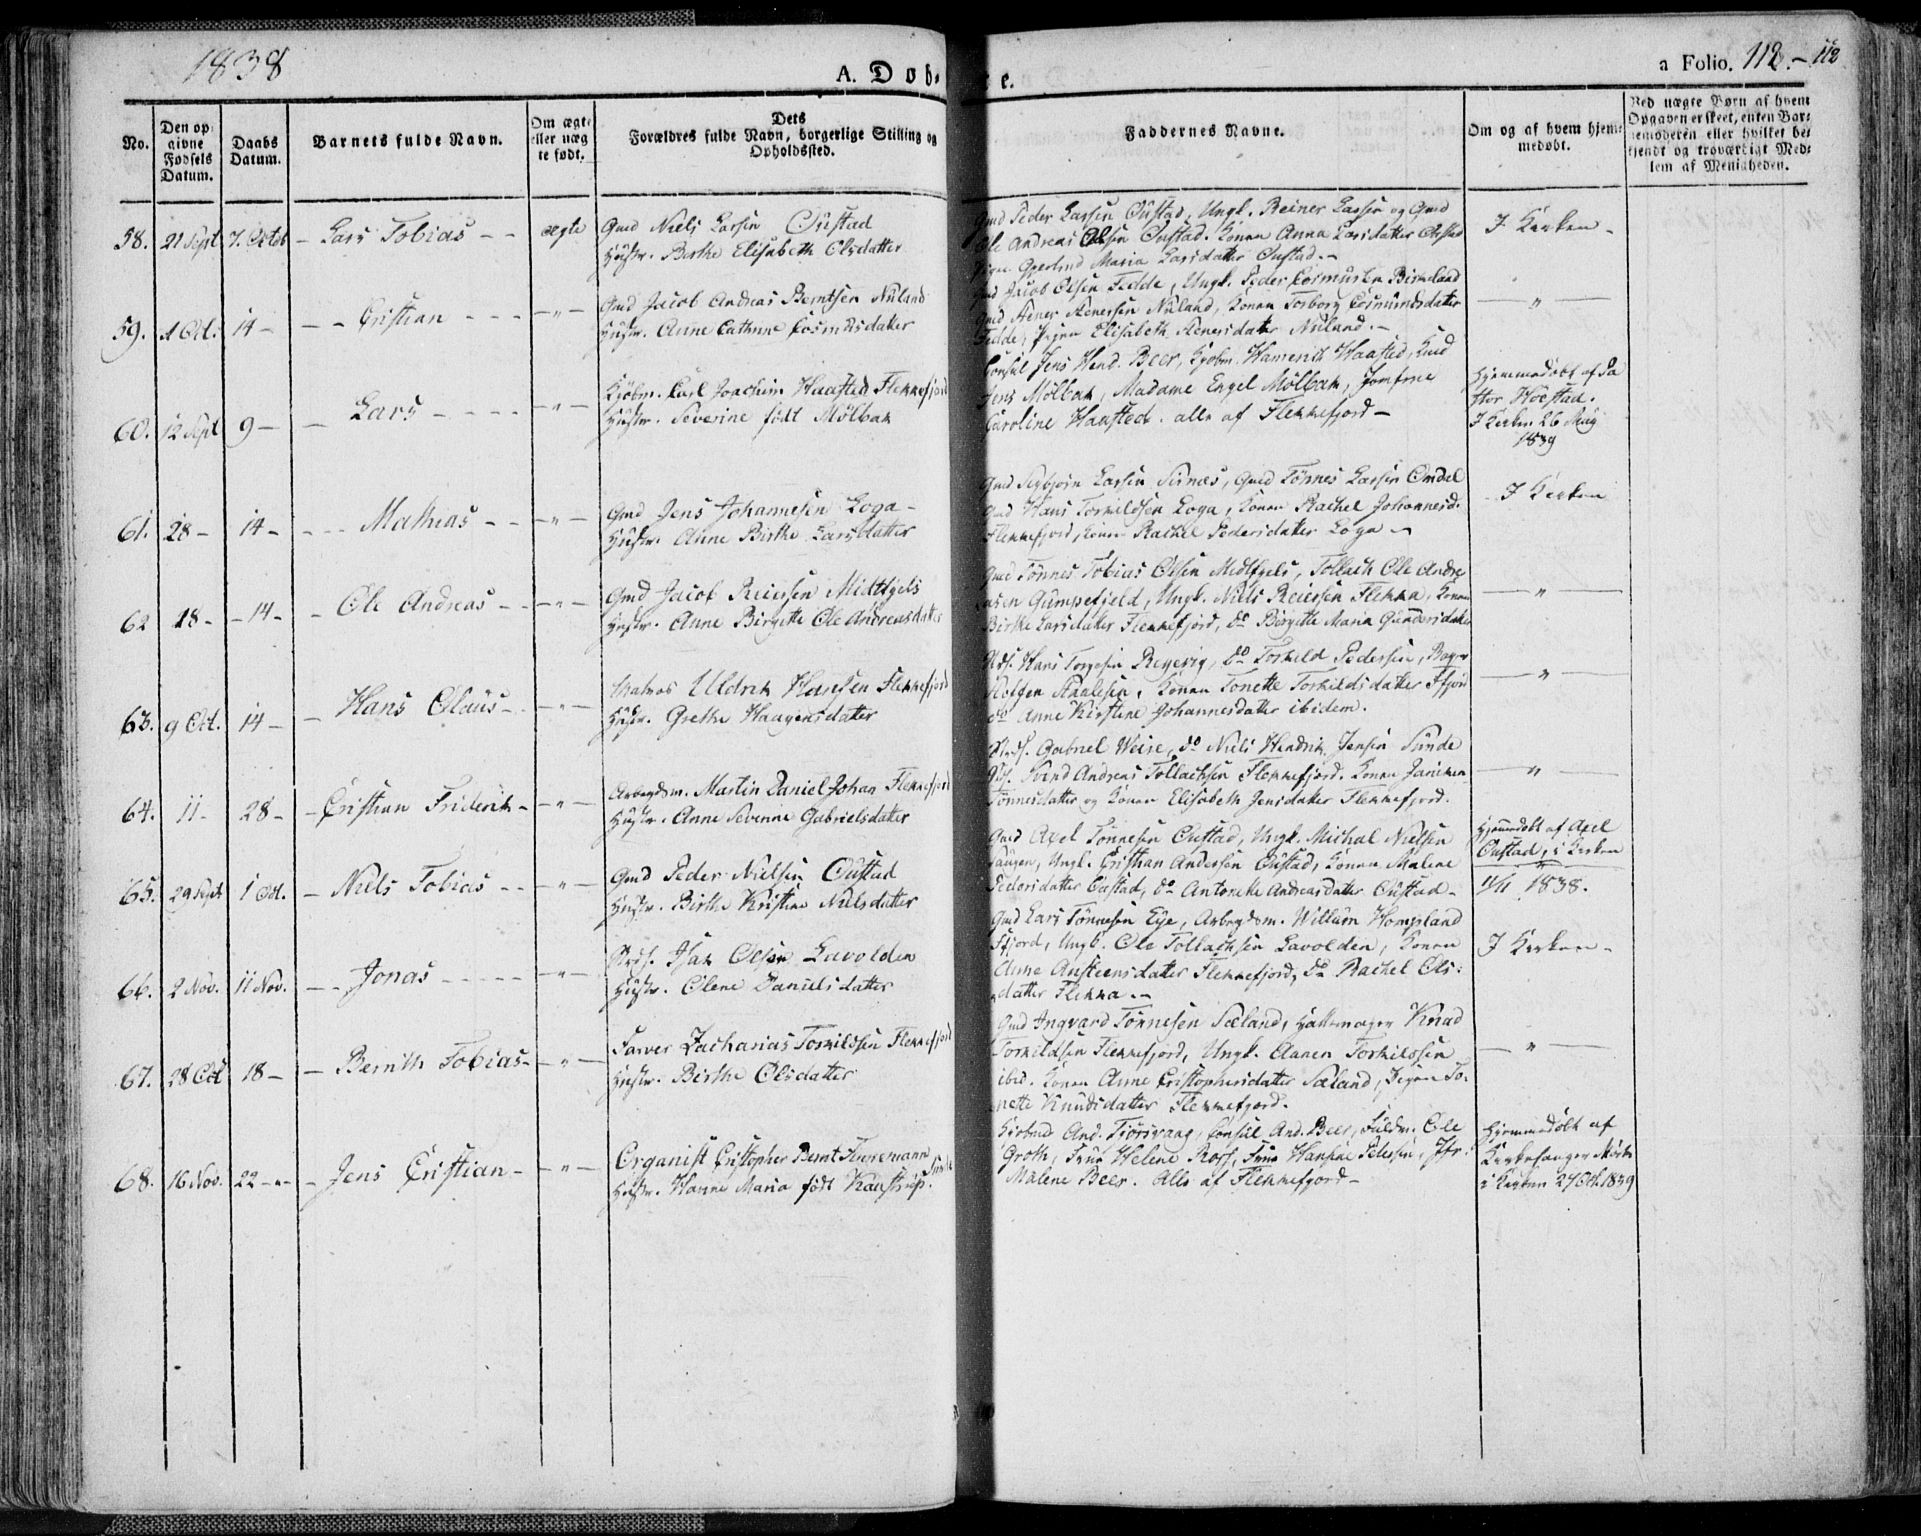 1838
A. Døb-
te.
a Folio. 112.
112
No.
Den opgivne Fødsels Datum.
Daabs Datum.
Barnets fulde Navn.
Om ægte eller uægte født.
Dets Forældres fulde Navn, borgerlige Stilling og Opholdssted.
Faddernes Navne.
Om og af hvem hjemmedøbt.
Ved uægte Børn af hvem Opgaven er skeet, enten Barnemoderen eller hvilket bekjendt og troværdigt Medlem af Menigheden.
58. 21 Sept 7. Octob - Lars Tobias - - ægte
Gmd Niels Larsen Oustad
Hustr. Birthe Elisabeth Olsdatter
Gmd Peder Larsen Oustad, Ungk. Reiner Larsen og Gmd
Ole Andreas Olsen Oustad. Konen Anna Larsdatter Oustad
Pigen Maria Larsdatter Oustad. -
I Kirken -
59. 1 Oct. 14 - - - Cristian - - - - " -
Gmd Jacob Andreas Berntsen Nuland
Hustr. Anne Cathrine Cosmusdatter
Gmd Jacob Olsen Fedde, Ungk. Peder Cosmusen Birkeland
Gmd Aener Aenersen Nuland, Konen Torborg Cosmusdatter
Fedde, Pigen Elisabeth Aenersdatter Nuland. -
- " -
60. 12 Sept 9 - - Lars - - - - - " -
Kjøbm. Carl Joachim Haasted Flekkefjord
Hustr. Severine født Mølbak
Consul Jens Hend. Beer, Kjøbm. Hamerich Haasted,
Jens Mølbak, Madame Engel Mølbak, Jomfrue
Caroline Haasted. alle af Flekkefjord -
Hjemmedøbt af Pa
stor Høestad.
I Kirken 26 Maj
1839
61. 28 - 14 - - - - Mathias - - - " -
Gmd Jens Johannesen Loga -
Hustr. Anne Birthe Larsdatter
Gmd Sigbjørn Larsen Sirnæs, Gmd Tønnes Larsen Omdal
Gmd Hans Torkildsen Loga, Konen Rachel Johannesd.
Flekkefjord, Konen Rachel Pedersdatter Loga -
I Kirken
62 18 - - 14 - - Ole Andreas - - - " -
Gmd Jacob Reiersen Midtfgels
Hustr. Anne Birgitte Ole Andreasdatter
Gmd Tønnes Tobias Olsen Midtfgels, Tollach Ole Andre
asen Gumpefjeld, Ungk. Niels Reiersen Flekka, Konen
Birthe Larsdatter Flekkefjord, do Birgitte Maria Gundersdatter
- " -
63. 9 Oct. 14 - - Hans Olaus - - " -
Matros Uldrik Hansen Flekkefjord
Hustr. Grethe Haagensdatter
Hans Torgesen Regevig, do Torkild Pedersen, Bager
Steffen Aanlesen, Konen Tonette Torkildsdatter Ffjord
do Anne Kirstine Johannesdatter ibidem.
- " -
64. 11 - 28 - - Cristian Friderik - - " -
Arbeydsm. Martin Daniel Johan Flekkefjord
Hustr. Anne Severine Gabrielsdatter
Gabriel Weise, do Niels Hendrik Jensen Sunde
Svend Andreas Tollachsen Flekkefjord. Konen Janiken
Tønnesdatter og Konen Elisabeth Jensdatter Flekkefjord.
- " -
65. 29 Sept 1 Oct. - Niels Tobias - - - " -
Gmd Peder Nielsen Oustad
Hustr. Birthe Kristine Nielsdatter
Gmd Axel Tønnesen Oustad, Ungk. Michal Nielsen
Haugen, Ungk. Cristian Andersen Oustad, Konen Malene
Pedersdatter Oustad, do Antonette Andreasdatter Oustad -
Hjemmedøbt af Axel
Oustad, i Kirken
11/11 1838.
66. 2 Nov. 11 Nov. - - Jonas - - - - - " -
Isak Olsen Lavolden
Hustr. Olene Danielsdatter
Gmd Lars Tønnesen Eye, Arbeydsm. Willum Hompland
Ffjord, Ungk. Ole Tollachsen Lavolden, Konen
Anne Ansteensdatter Flekkefjord, do Rachel Ols-
datter Flekka. -
I Kirken -
67. 28 Oct 18 - - Bernth Tobias - - " -
Farver Zacharias Torkildsen Flekkefjord
Hustr. Birthe Olsdatter
Gmd Ingvard Tønnesen Sæland, Hattemager Knud
Torkildsen Flekkefjord, Ungk. Aanen Torkildsen
ibid. Konen Anne Cristophersdatter Sæland, Pigen To-
nette Knudsdatter Flekkefjord.
- " -
68. 16 Nov. 22 - - Jens Cristian - - " -
Organist Cristopher Bernt
Hustr. Hanne Maria født Kaastrup. Sunde
And. Tjørsvaag, Consul And. Beer, Fuldm. Ole
Groth, Frue Helene Ross, Frue Hansine Petersen, Jfr.
Malene Beer. Alle af Flekkefjord -
Hjemmedøbt af
Kirkesanger
i Kirken 27 Oct. 1839